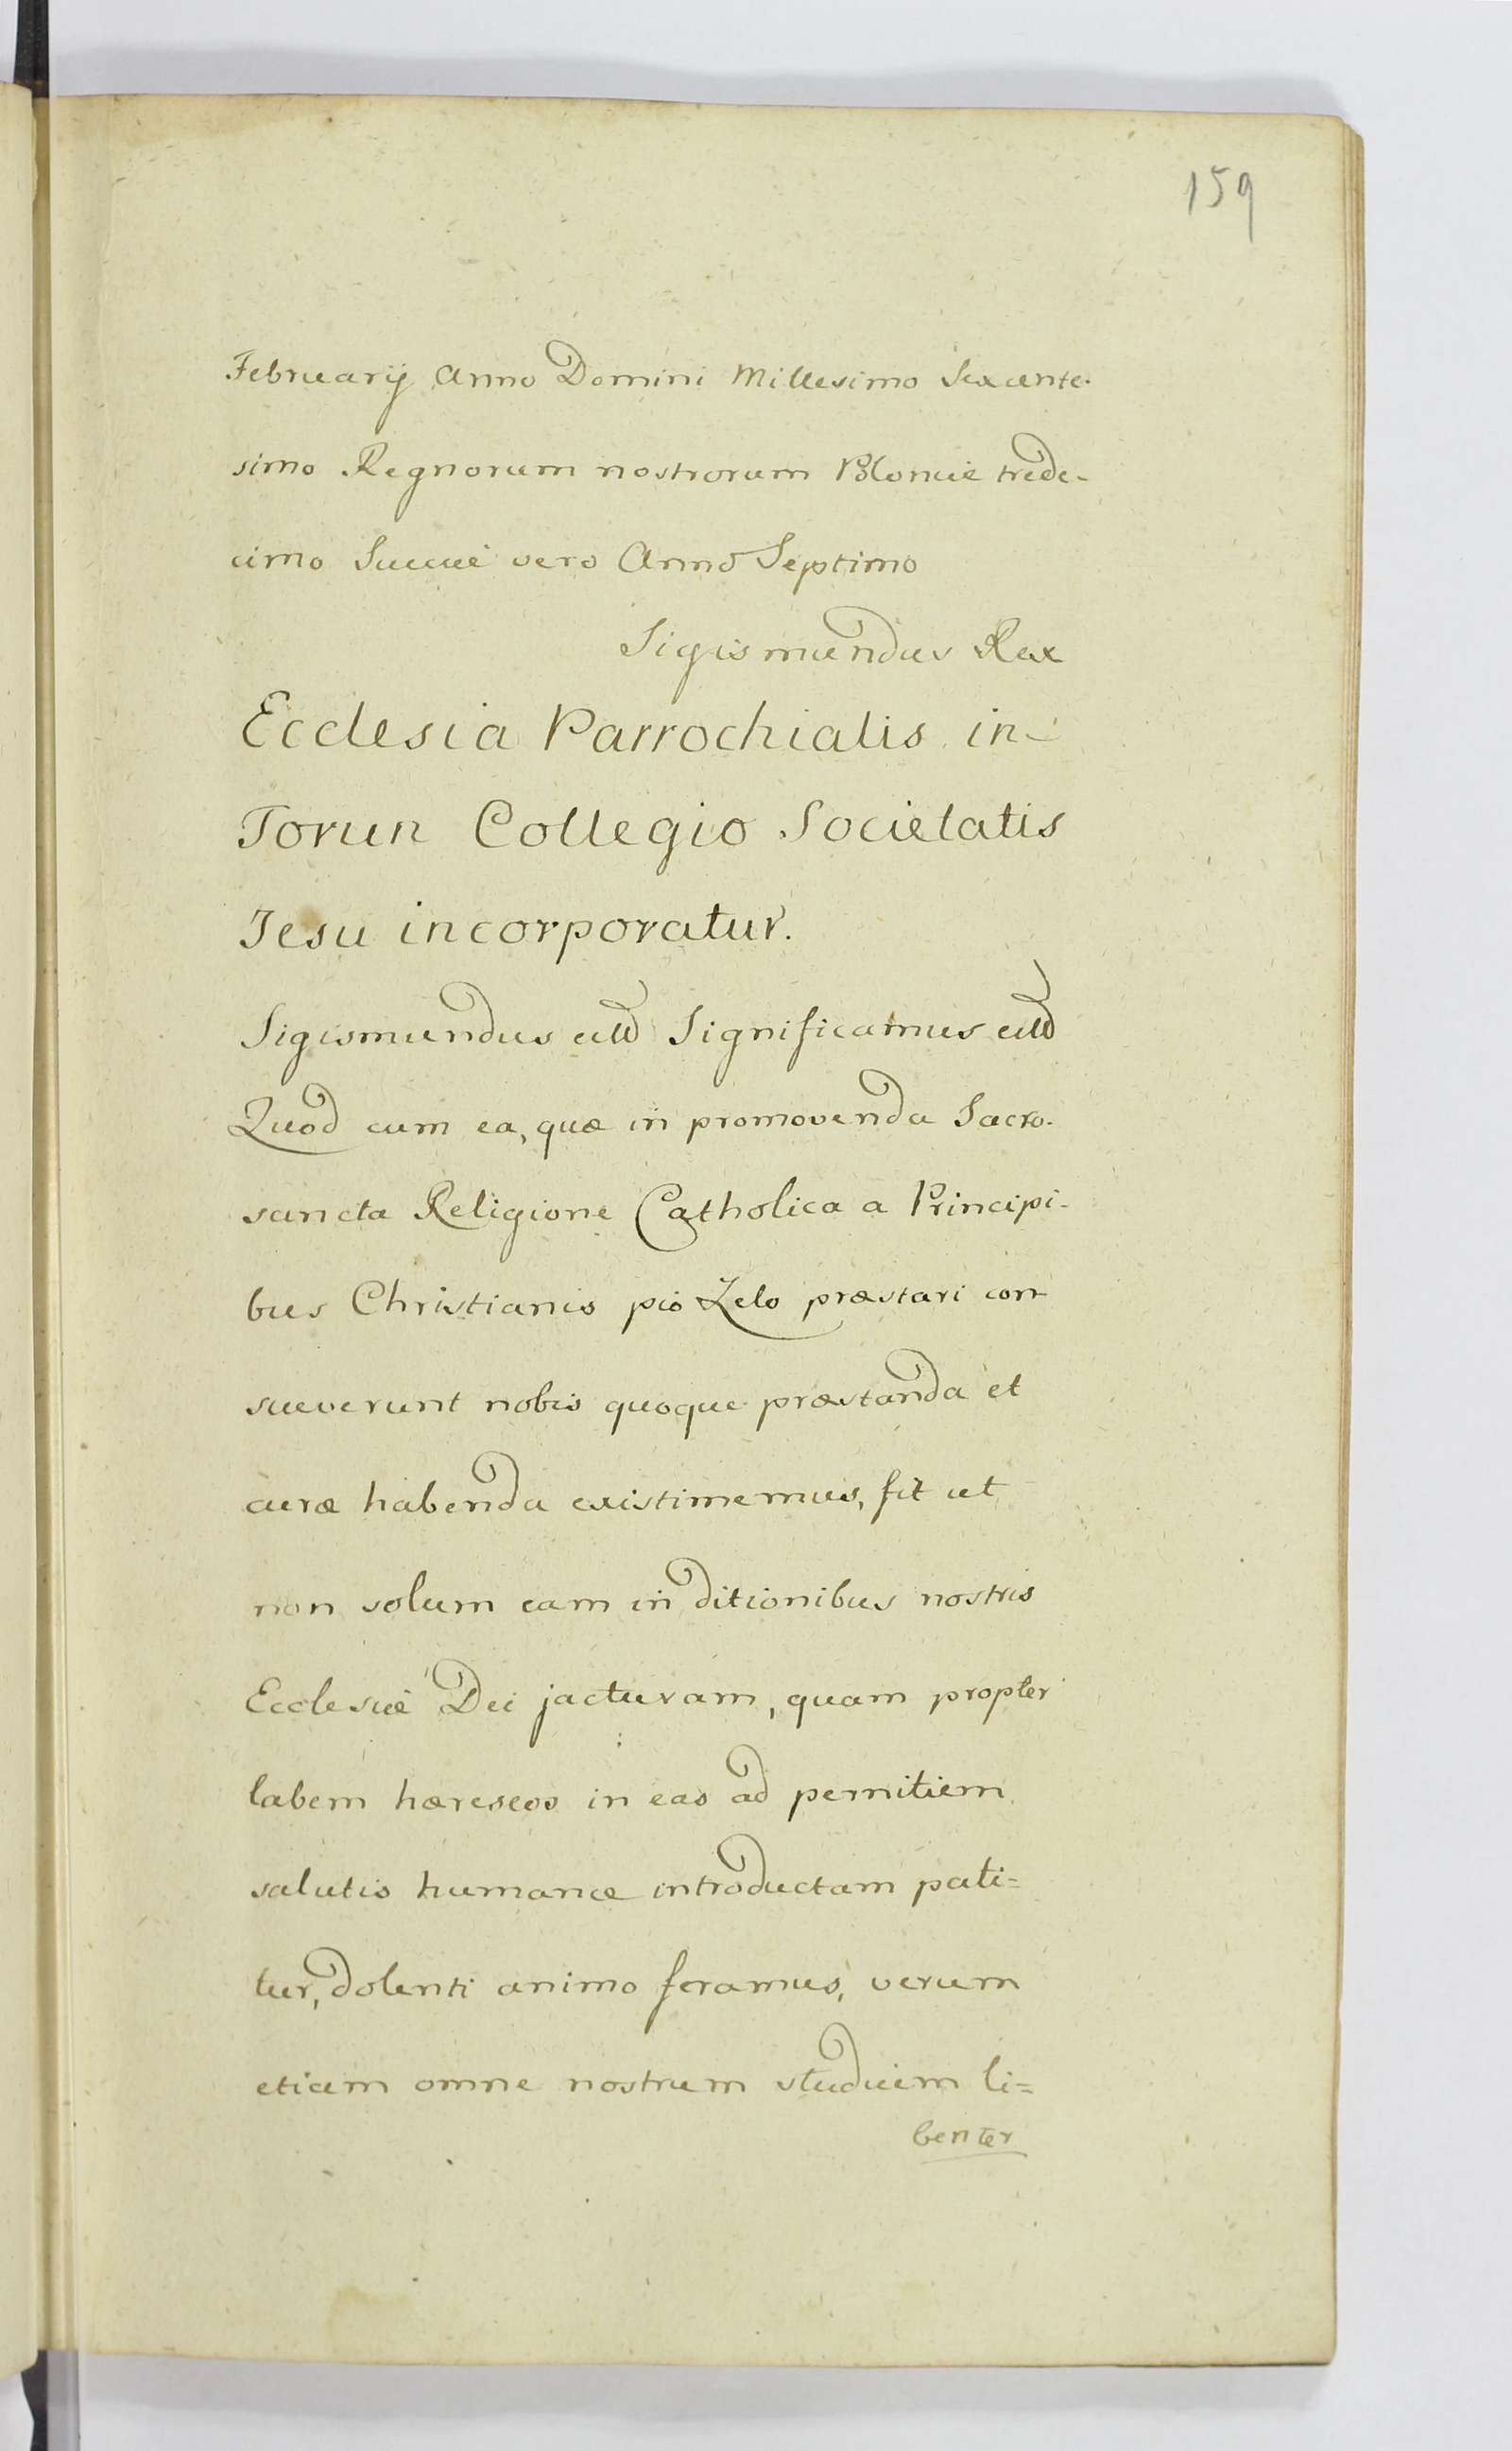 159
Februarij Anno Domini Millesimo Sexcente-
simo Regnorum nostrorum Poloniæ trede-
cimo Sueciæ vero Anno Septimo
Sigismundus Rex
Ecclesia Parrochialis in
Torun Collegio Societatis
Jesu incorporatur.
Sigismundus Significamus
Quod cum ea, quæ in promovenda Sacro-
sancta Religione Catholica a Principi-
bus Christianis pio Zelo præstari con
sueverunt nobis quoque præstanda et
curæ habenda existimemus, fit ut
non solum eam in ditionibus nostris
Ecclesiæ Dei jacturam, quam propter
labem hæreseos in eas ad pernitiem
salutis humanæ introductam pati=
tur, dolenti animo feramus, verum
etiam omne nostrum studium li=
benter